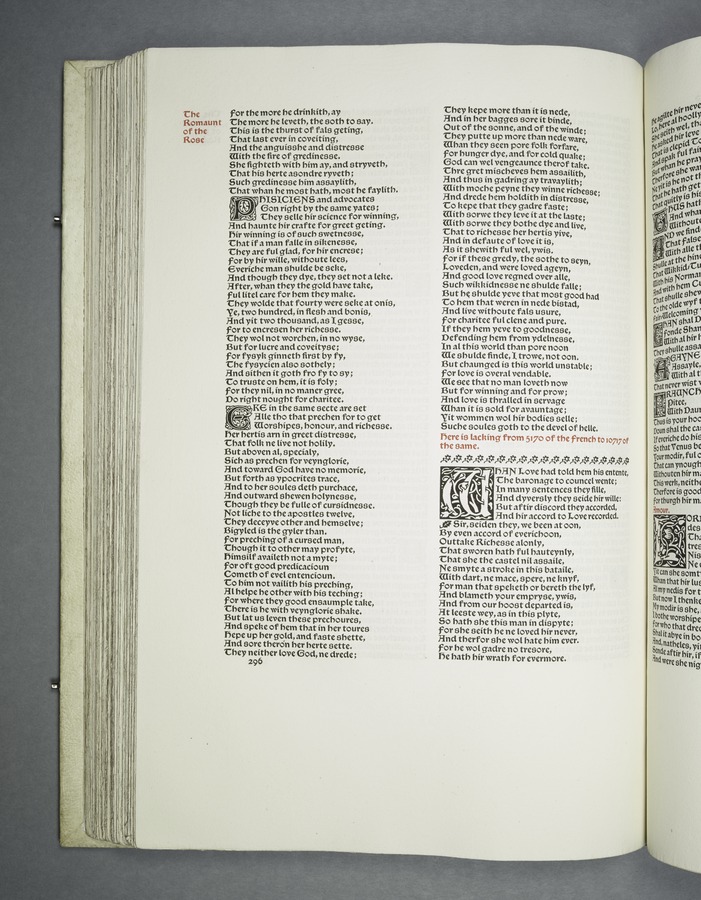 The
Romaunt
of the
Rose
For the more he drinkith, ay
The more he leveth, the soth to say.
This is the thurst of fals geting,
That last ever in coveiting,
And the anguisshe and distresse
With the fire of gredinesse.
She fighteth with him ay, and stryveth,
That his herte asondre ryveth;
Such gredinesse him assayleth,
That whan he most hath, most he faylith.
PHISICIENS and advocates
Gon right by the same yates;
They selle hir science for winning,
And haunte hir crafte for greet geting.
Hir winning is of such swetnesse,
That if a man falle in sikenesse,
They are ful glad, for hir encrese;
For by hir wille, withoute lees,
Everiche man shulde be seke,
And though they dye, they set not a leke.
After, whan they the gold have take,
Ful litel care for hem they make.
They wolde that fourty were seke at onis,
Ye, two hundred, in flesh and bonis,
And yit two thousand, as I gesse,
For to encresen her richesse.
They wol not worchen, in no wyse,
But for lucre and coveityse;
For fysyk ginneth first by fy,
The fysycien also sothely;
And sithen it goth fro fy to sy;
To truste on hem, it is foly;
For they nil, in no maner gree,
Do right nought for charitee.
EKE in the same secte are set
Alle tho that prechen for to get
Worshipes, honour, and richesse.
Her hertis arn in greet distresse,
That folk ne live not holily.
But aboven al, specialy,
Sich as prechen for veynglorie,
And toward God have no memorie,
But forth as ypocrites trace,
And to her soules deth purchace,
And outward shewen holynesse,
Though they be fulle of cursidnesse.
Not liche to the apostles twelve,
They deceyve other and hemselve;
Bigyled is the gyler than.
For preching of a cursed man,
Though it to other may profyte,
Himsilf availeth not a myte;
For oft good predicacioun
Cometh of evel entencioun.
To him not vailith his preching,
Al helpe he other with his teching;
For where they good ensaumple take,
There is he with veynglorie shake.
But lat us leven these prechoures,
And speke of hem that in her toures
Hepe up her gold, and faste shette,
And sore theron her herte sette.
They neither love God, ne drede;
296
They kepe more than it is nede,
And in her bagges sore it binde,
Out of the sonne, and of the winde;
They putte up more than nede ware,
Whan they seen pore folk forfare,
For hunger dye, and for cold quake;
God can wel vengeaunce therof take.
Thre gret mischeves hem assailith,
And thus in gadring ay travaylith;
With moche peyne they winne richesse;
And drede hem holdith in distresse,
To kepe that they gadre faste;
With sorwe they leve it at the laste;
With sorwe they bothe dye and live,
That to richesse her hertis yive,
And in defaute of love it is,
As it shewith ful wel, ywis.
For if these gredy, the sothe to seyn,
Loveden, and were loved ageyn,
And good love regned over alle,
Such wikkidnesse ne shulde falle;
But he shulde yeve that most good had
To hem that weren in nede bistad,
And live withoute fals usure,
For charitee ful clene and pure.
If they hem yeve to goodnesse,
Defending hem from ydelnesse,
In al this world than pore noon
We shulde finde, I trowe, not oon.
But chaunged is this world unstable;
For love is overal vendable.
We see that no man loveth now
But for winning and for prow;
And love is thralled in servage
Whan it is sold for avauntage;
Yit wommen wol hir bodies selle;
Suche soules goth to the devel of helle.
Here is lacking from 5170 of the French to 10717 of
the same.
WHAN Love had told hem his entente,
The baronage to councel wente;
In many sentences they fille,
And dyversly they seide hir wille:
But aftir discord they accorded,
And hir accord to Love recorded.
Sir, seiden they, we been at oon,
By even accord of everichoon,
Outtake Richesse alonly,
That sworen hath ful hauteynly,
That she the castel nil assaile,
Ne smyte a stroke in this bataile,
With dart, ne mace, spere, ne knyf,
For man that speketh or bereth the lyf,
And blameth your empryse, ywis,
And from our hoost departed is,
At leeste wey, as in this plyte,
So hath she this man in dispyte;
For she seith he ne loved hir never,
And therfor she wol hate him ever.
For he wol gadre no tresore,
He hath hir wrath for evermore.